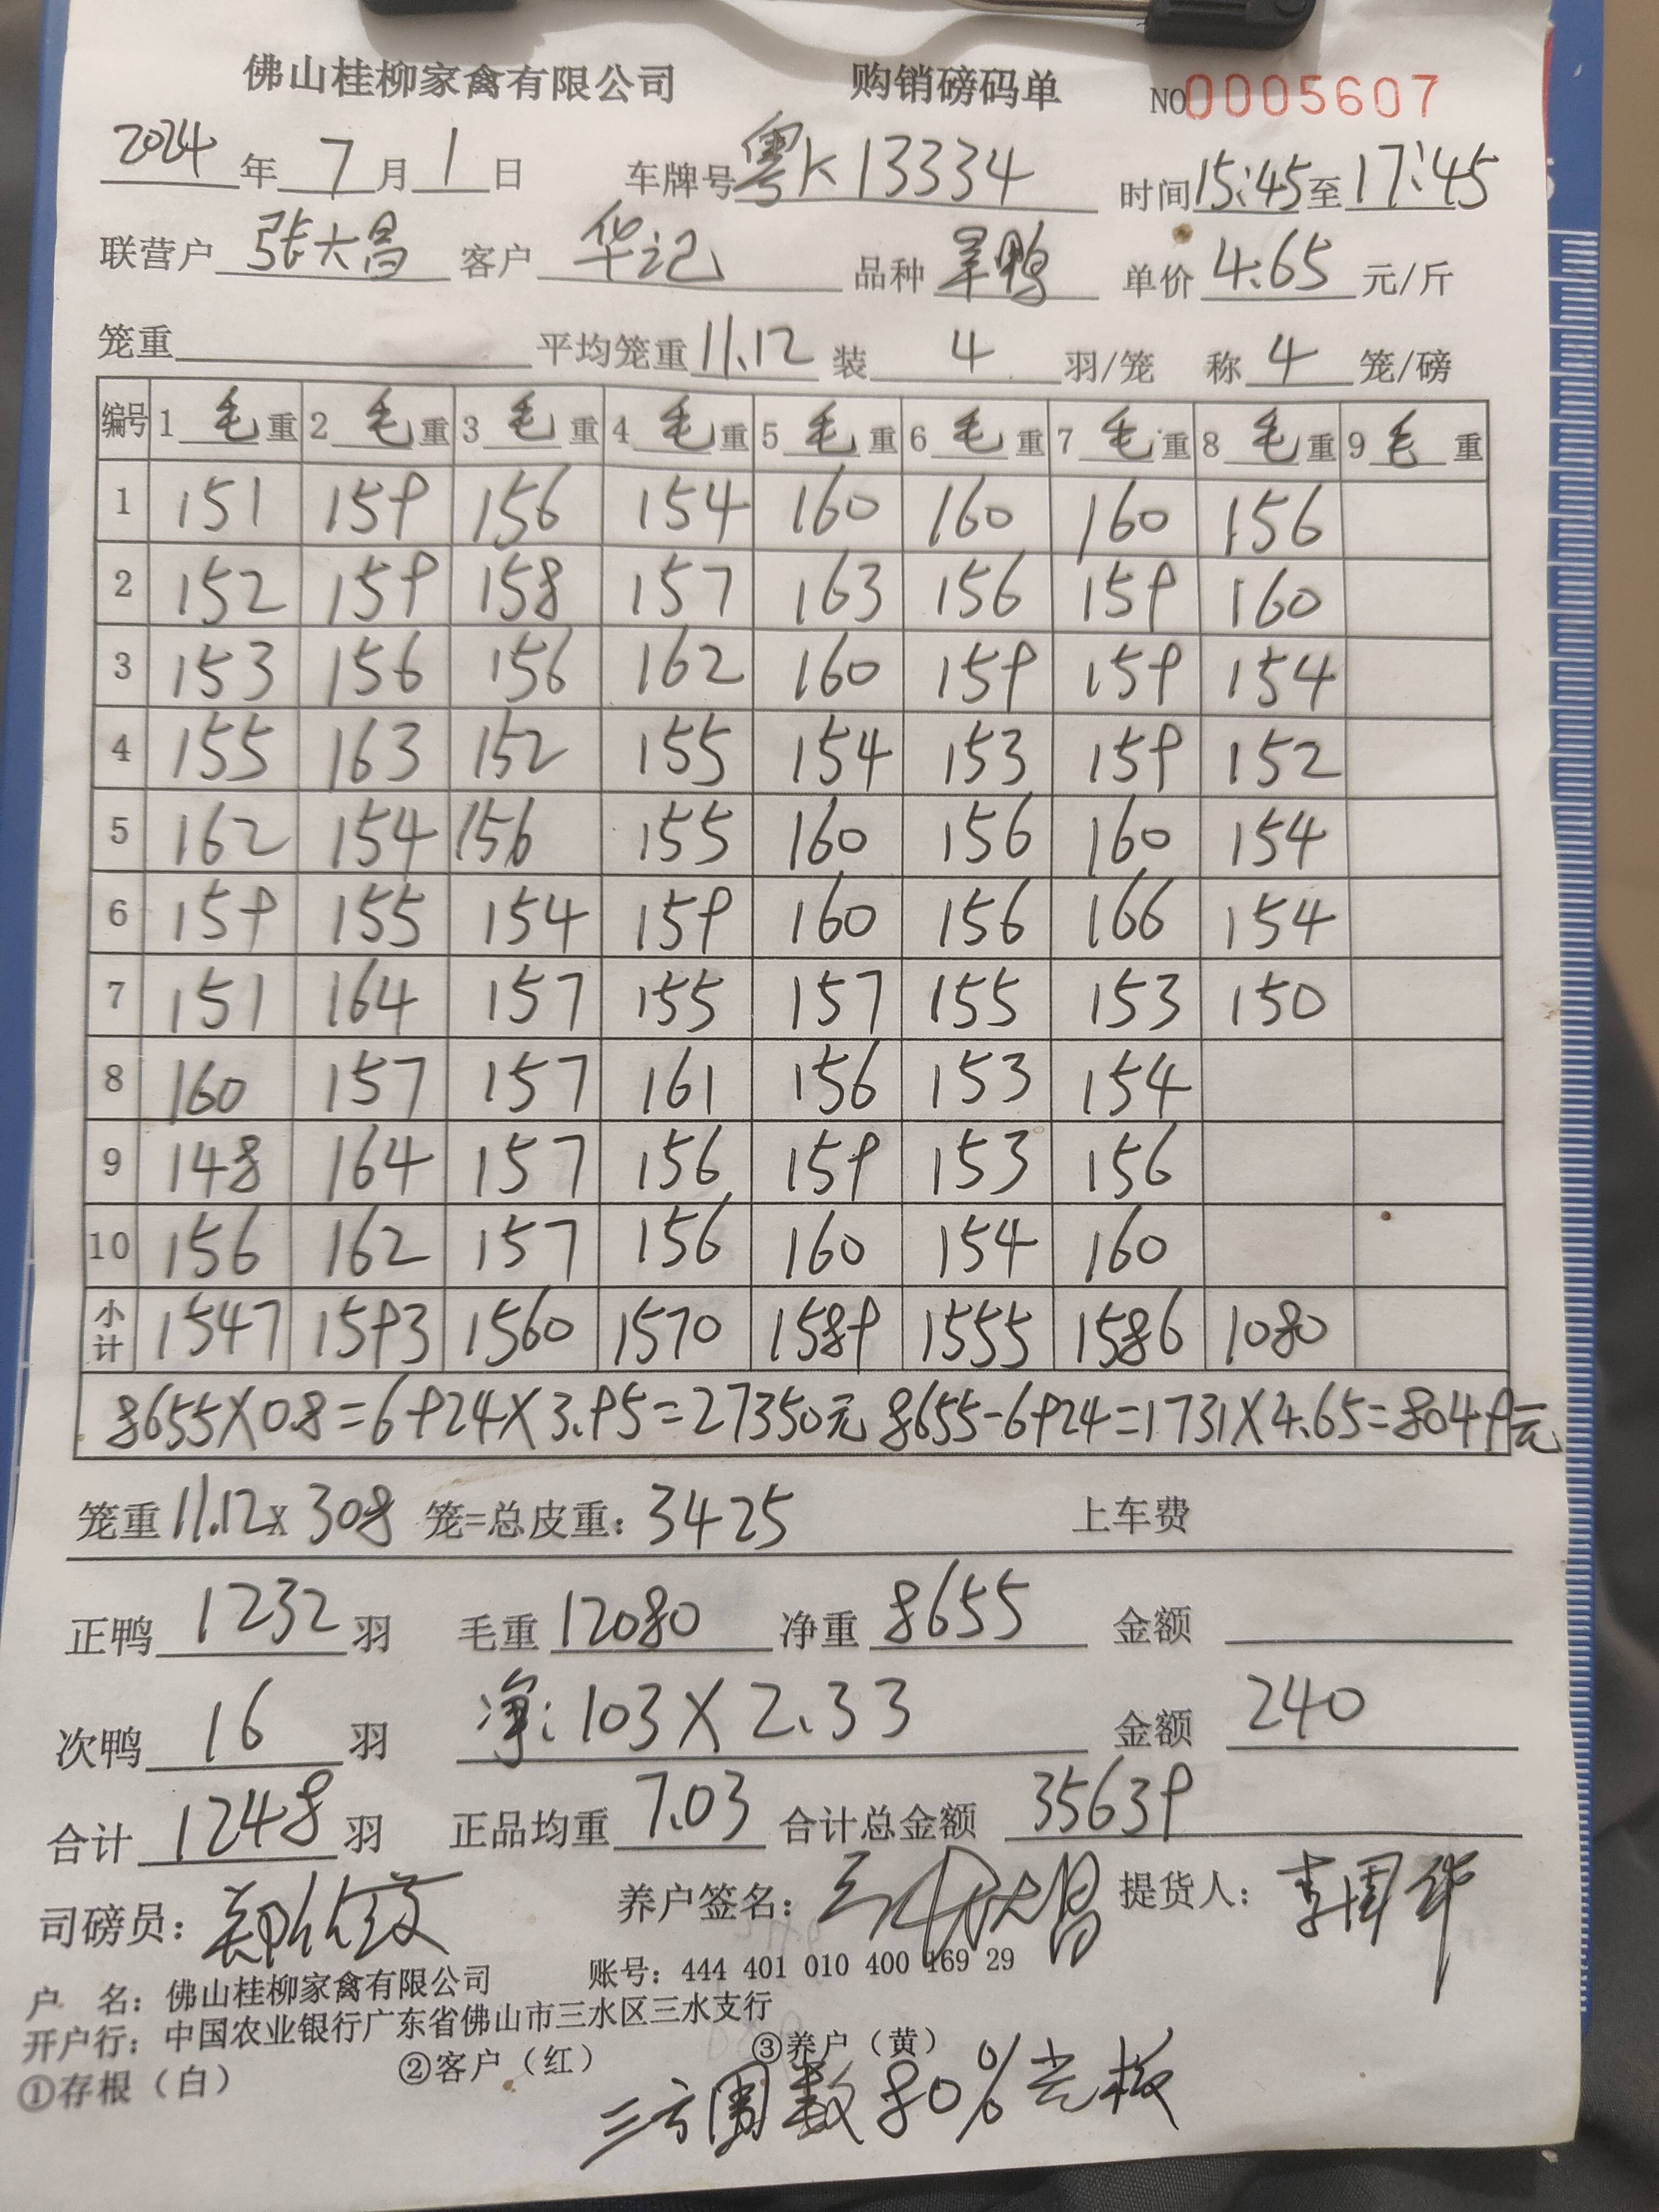 佛山桂柳家禽有限公司 购销磅码单 NO0005607
2024年7月1日 车牌号粤K13334 时间15:45至17:45
联营户 张大昌 客户 华记 品种 鸭 单价 4.65 元/斤
笼重 平均笼重 11.12 装 4 羽/笼 称 4 笼/磅
编号 1 毛重 2 毛重 3 毛重 4 毛重 5 毛重 6 毛重 7 毛重 8 毛重 9 毛重
1 151 159 156 154 160 160 160 156
2 152 159 158 157 163 156 159 160
3 153 156 156 162 160 159 159 154
4 155 163 152 155 154 153 159 152
5 162 154 156 155 160 156 160 154
6 159 155 154 159 160 156 166 154
7 151 164 157 155 157 155 153 150
8 160 157 157 161 156 153 154
9 148 164 157 156 159 153 156
10 156 162 157 156 160 154 160
小计 1547 1593 1560 1570 1589 1555 1586 1080
8655X0.8=6924X3.95=27350元 8655-6924=1731X4.65=8049元
笼重 11.12x 308 笼=总皮重: 3425 上车费
正鸭 1232 羽 毛重 12080 净重 8655 金额
次鸭 16 羽 净: 103X2.33 金额 240
合计 1248 羽 正品均重 7.03 合计总金额 35639
司磅员: 养户签名: 大昌 提货人: 李国华
户 名: 佛山桂柳家禽有限公司 账号: 444 401 010 400 169 29
开户行: 中国农业银行广东省佛山市三水区三水支行
①存根（白） ②客户（红） ③养户（黄）
三方圈数80%光板